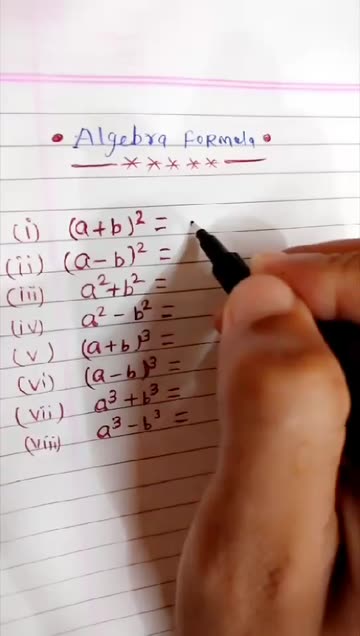 • Algebra Formula •
— ***** —
(i) (a+b)² =
(ii) (a-b)² =
(iii) a²+b² =
(iv) a² - b² =
(v) (a+b)³ =
(vi) (a-b)³ =
(vii) a³+b³ =
(viii) a³-b³ =